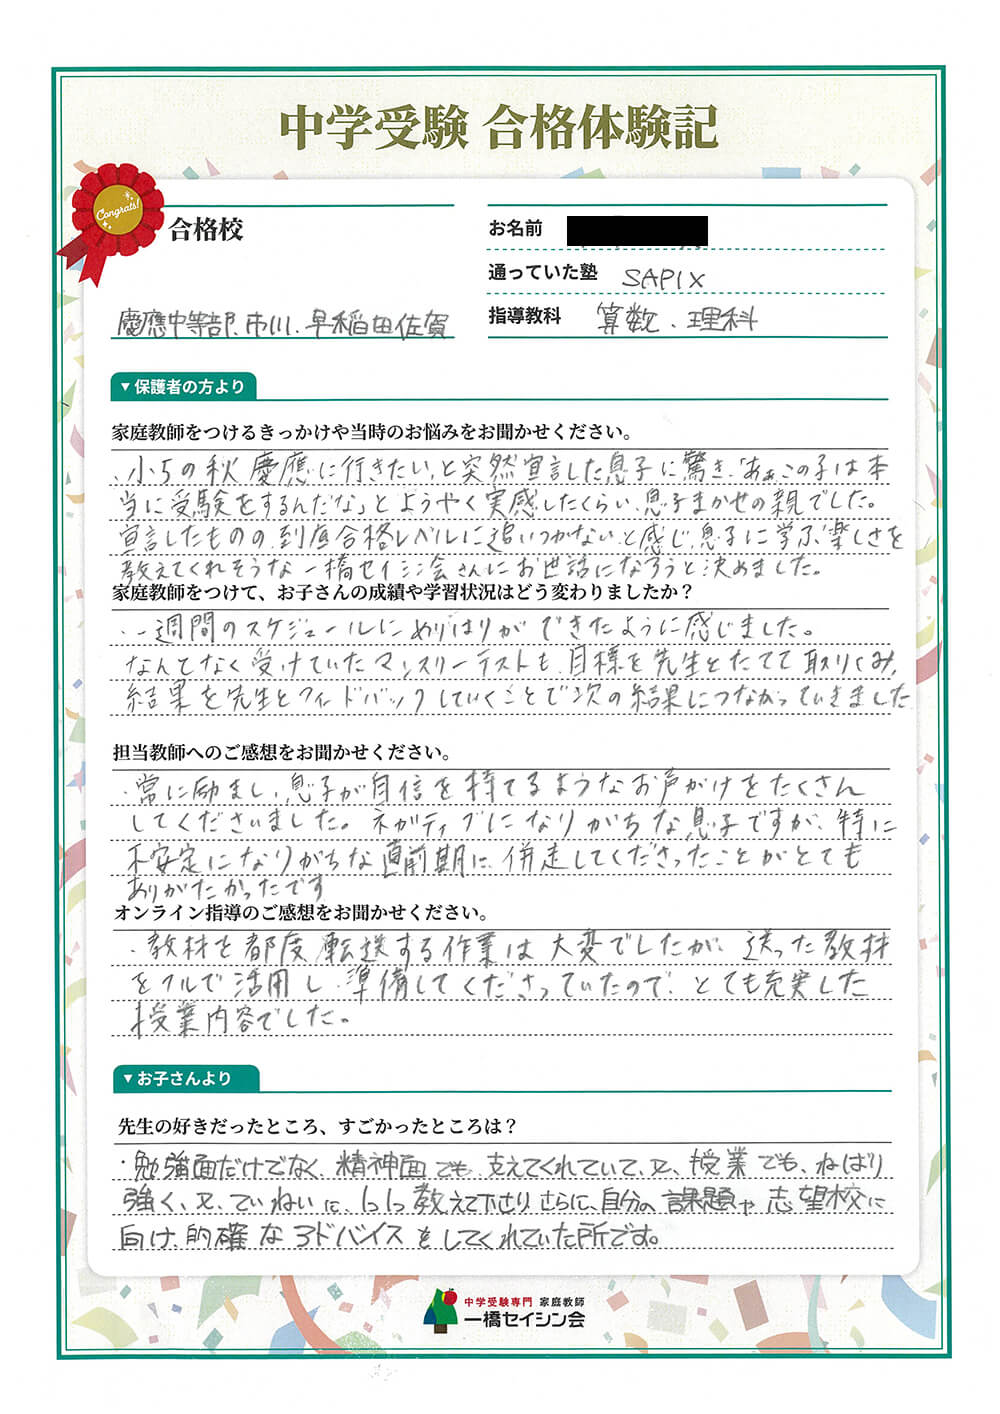 中学受験 合格体験記
Congrats!
合格校
慶應中等部、市川、早稲田佐賀
お名前
通っていた塾 SAPIX
指導教科 算数、理科
▼保護者の方より
家庭教師をつけるきっかけや当時のお悩みをお聞かせください。
・小5の秋 慶應に行きたい、と突然宣言した息子に驚き、「あぁ、この子は本
当に受験をするんだな」とようやく実感したくらい、息子まかせの親でした。
宣言したものの、到底合格レベルに追いつかない、と感じ、息子に学ぶ楽しさを
教えてくれそうな一橋セイシン会さんにお世話になろうと決めました。
家庭教師をつけて、お子さんの成績や学習状況はどう変わりましたか?
・一週間のスケジュールにめりはりができたように感じました。
なんとなく受けていたマンスリーテストも、目標を先生とたてて取りくみ、
結果を先生とフィードバックしていくことで次の結果につながっていきました
担当教師へのご感想をお聞かせください。
・常に励まし、息子が自信を持てるようなお声がけをたくさん
してくださいました。ネガティブになりがちな息子ですが、特に
不安定になりがちな直前期に、併走してくださったことがとても
ありがたかったです
オンライン指導のご感想をお聞かせください。
・教材を都度転送する作業は大変でしたが、送った教材
をフルで活用し、準備してくださっていたので、とても充実した
授業内容でした。
▼お子さんより
先生の好きだったところ、すごかったところは?
・勉強面だけでなく、精神面でも、支えてくれていて、又、授業でも、ねばり
強く、又、ていねいに、1つ1つ教えて下さり、さらに、自分の課題や志望校に
向け、的確なアドバイスをしてくれていた所です。
中学受験専門 家庭教師
一橋セイシン会